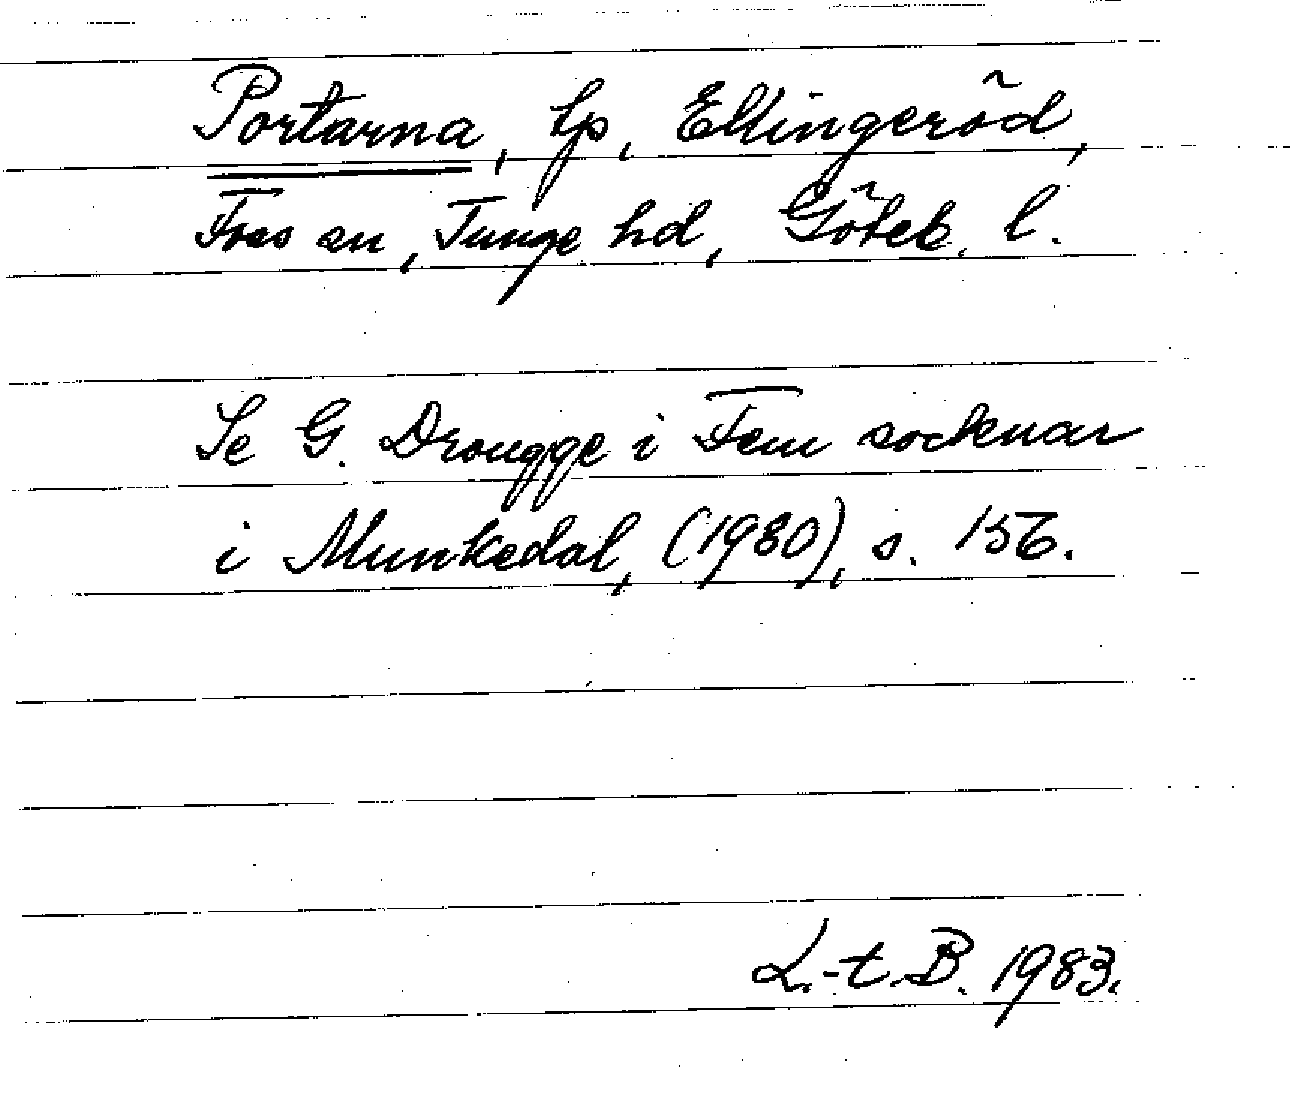 Portarna, tp, Ellingeröd,
Foss sn, Tunge hd, Göteb. l.
Se G. Drougge i Fem socknar
i Munkedal, (1980), s. 156.
L.-t. B. 1983.